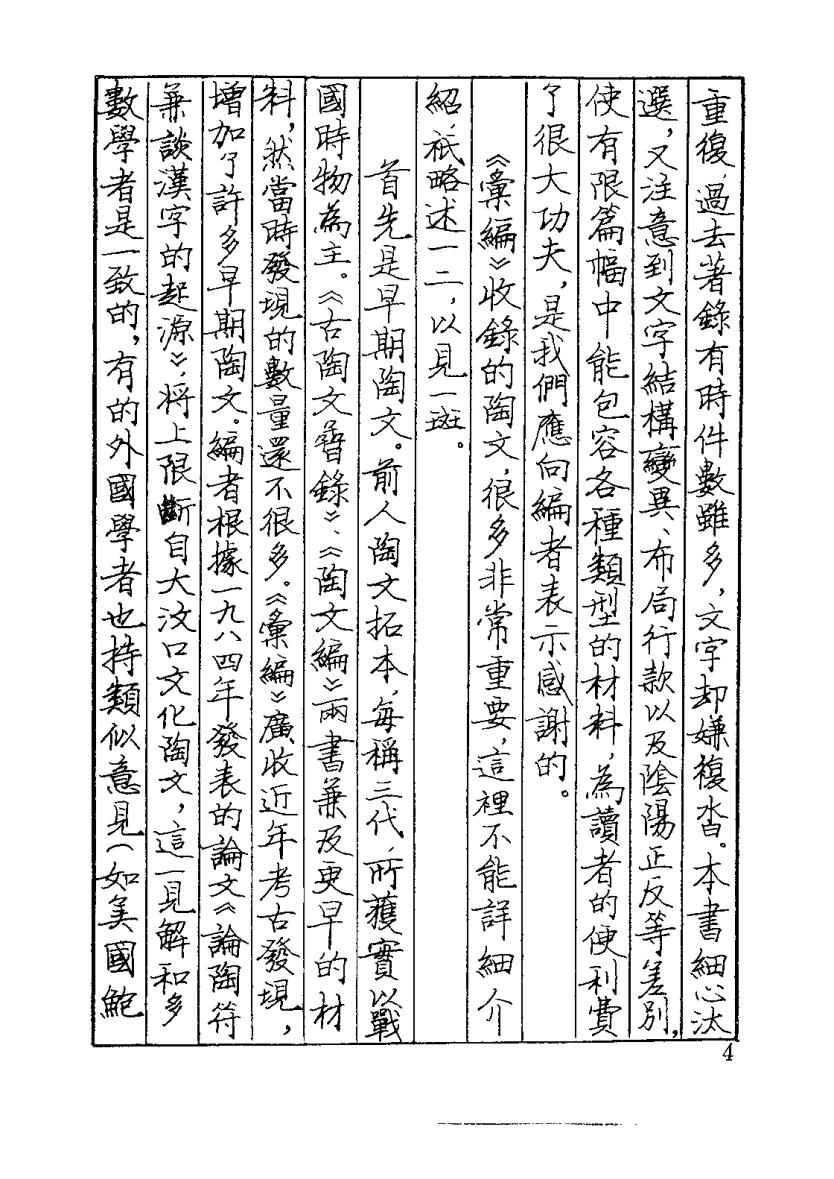 重復，過去著錄有時件數雖多，文字却嫌複沓。本書細心汰
選，又注意到文字結構變異、布局行款以及陰陽正反等差别，
使有限篇幅中能包容各種類型的材料，為讀者的便利費
了很大功夫，是我們應向編者表示感謝的。
《彙編》收錄的陶文，很多非常重要，這裡不能詳細介
紹，祇略述一二，以見一斑。
首先是早期陶文。前人陶文拓本，每稱三代，所獲實以戰
國時物為主。《古陶文舂錄》、《陶文編》兩書兼及更早的材
料，然當時發現的數量還不很多。《彙編》廣收近年考古發現，
增加了許多早期陶文。編者根據一九八四年發表的論文《論陶符
兼談漢字的起源》，將上限斷自大汶口文化陶文，這一見解和多
數學者是一致的，有的外國學者也持類似意見（如美國鮑
4